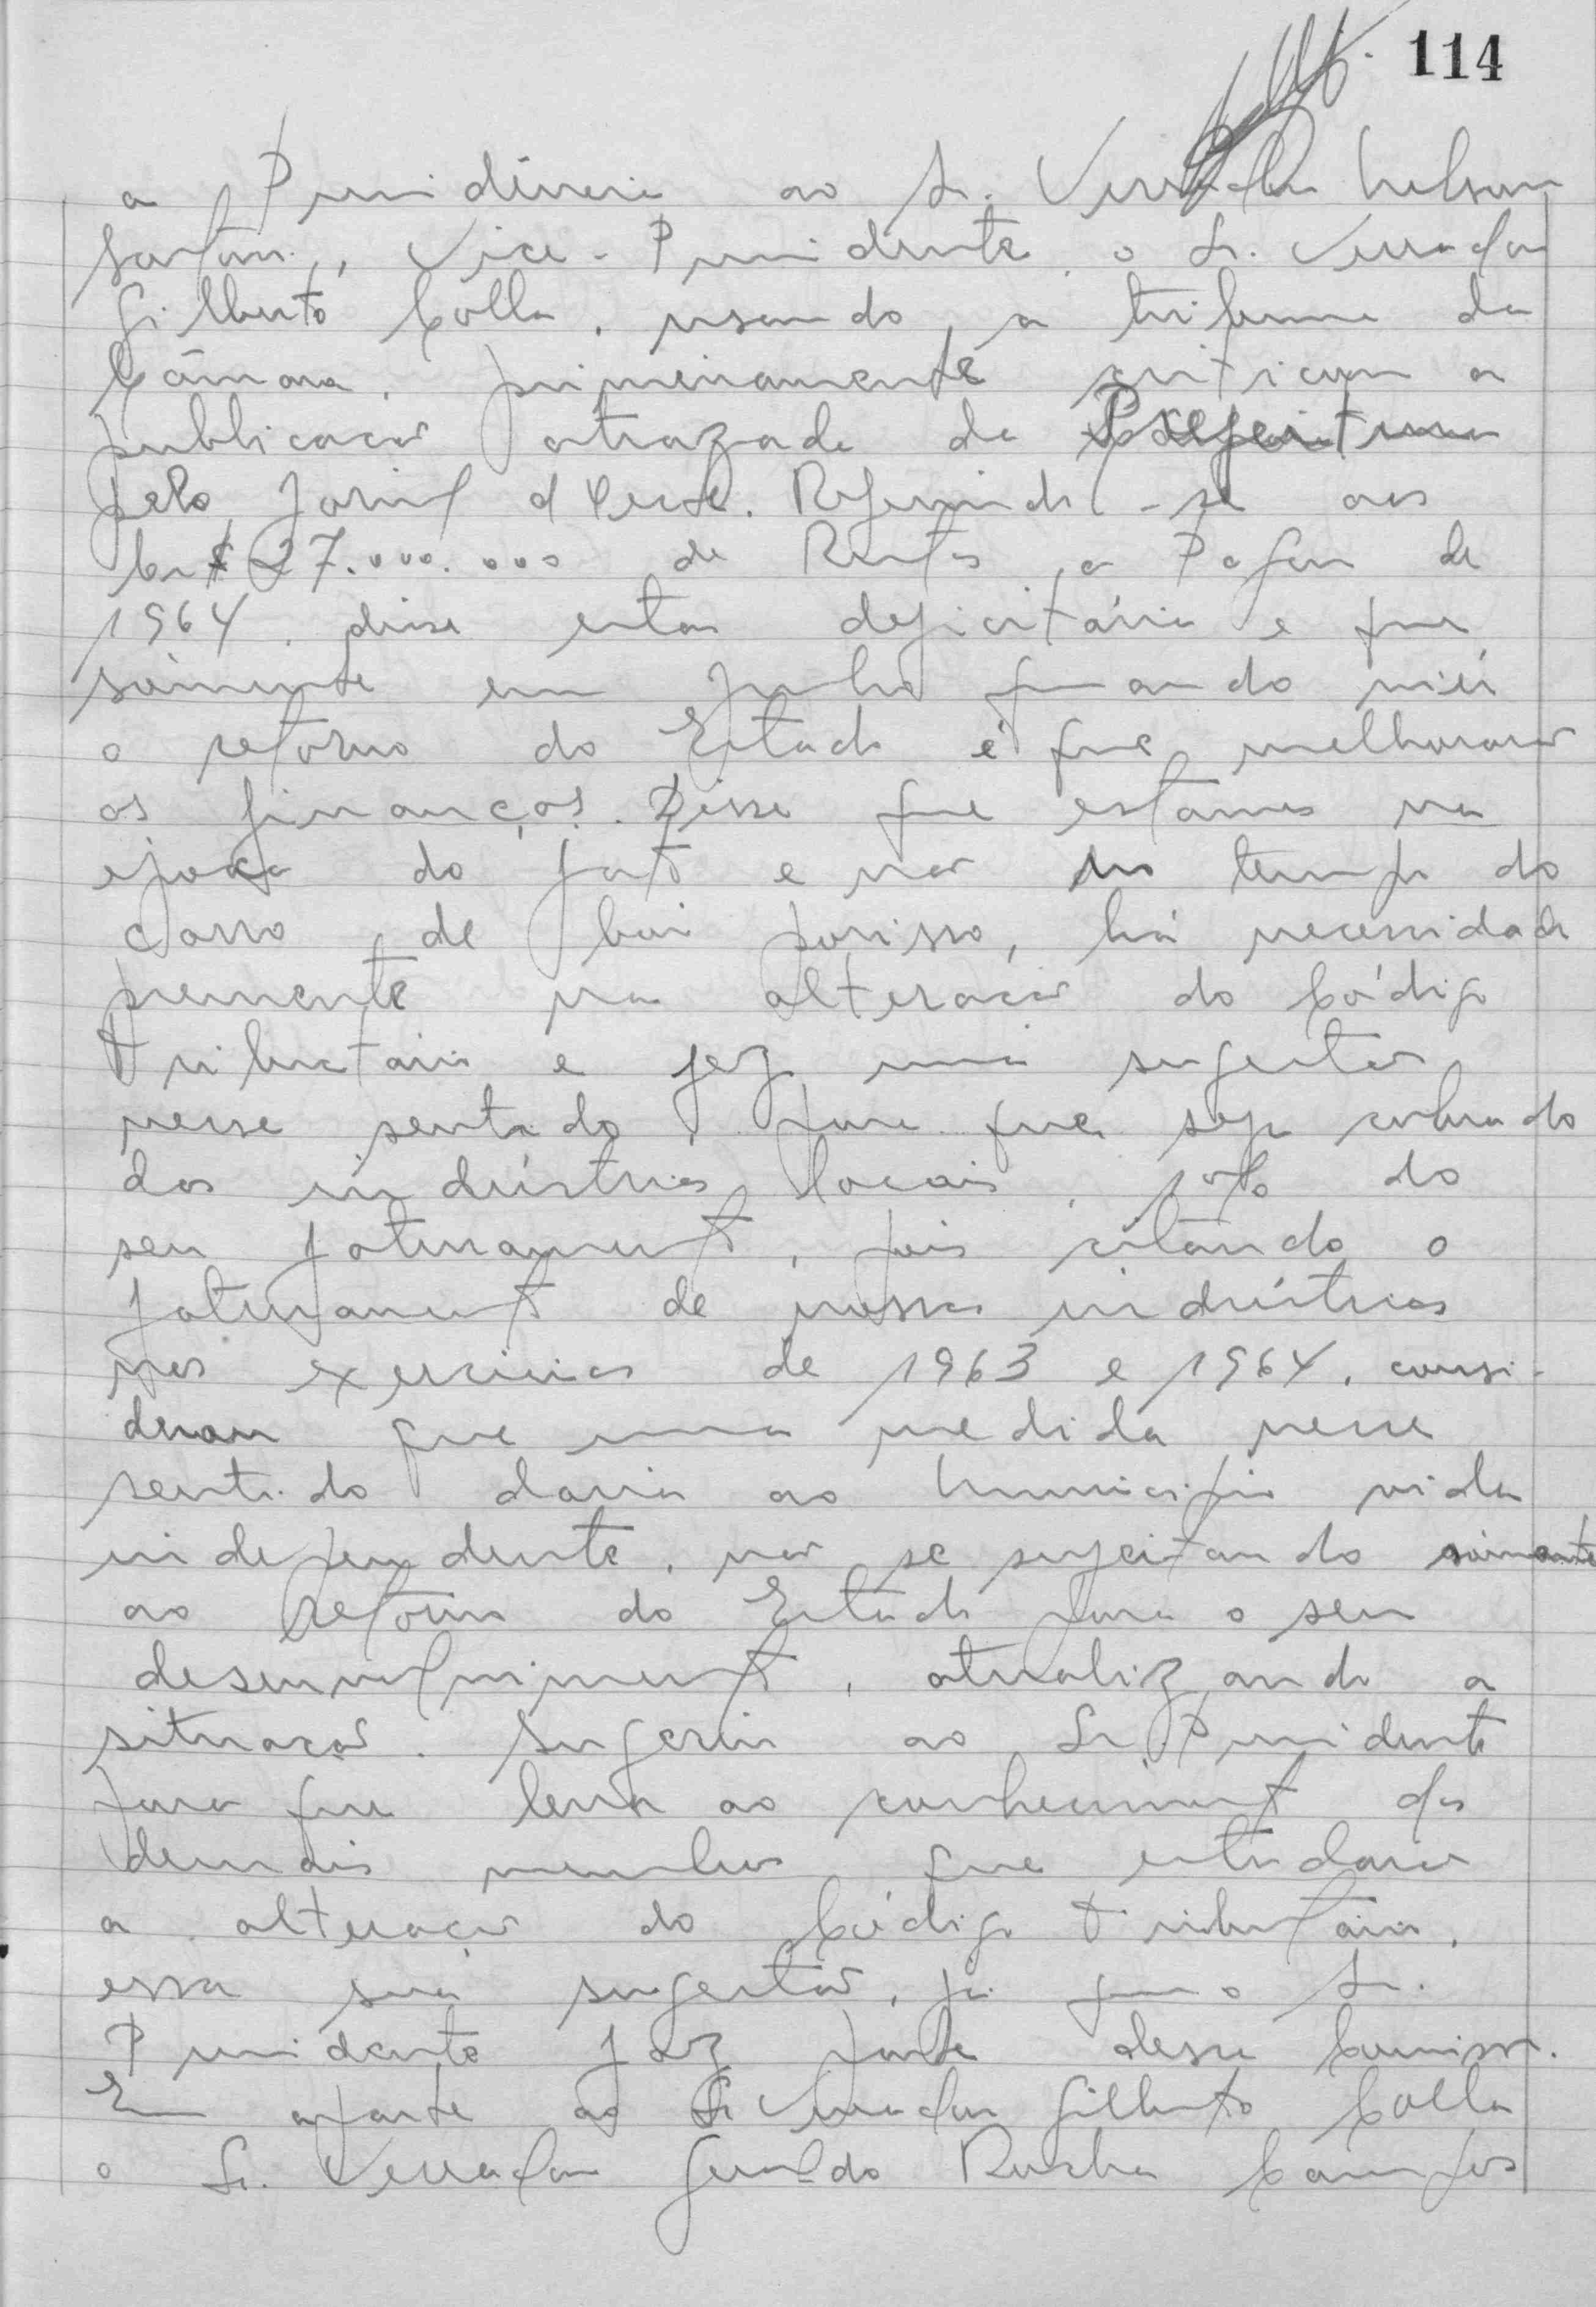 114
a Presidência ao Sr. Vereador Nelson
Vice-Presidente. o Sr. Vereador
Gilberto Colla, usando, a tribuna da
Câmara, primeiramente criticou a
publicacão atrazada da Prefeitura
pelo Jornal d'Oeste. Referindo-se aos
Cr$ 27.000.000 de Restos a Pagar de
1964, disse estar deficitário e que
sòmente em Junho quando virá
o retorno do Estado é que melhorará
as finanças. Disse que estamos na
época do jato e não no tempo do
carro de boi porisso, há necessidade
premente na alteracão do Código
Tributário e fez uma sugestão
nesse sentido, para que seja cobrado
das indústrias locais, 1% do
seu faturamento, pois citando o
faturamento de nossas indústrias
nos exercícios de 1963 e 1964, consi-
derou que uma medida nesse
sentido daria ao Município vida
independente, não se sujeitando sòmente
ao retorno do Estado para o seu
desenvolvimento, atualizando a
situação. Sugeriu ao Sr. Presidente
para que leve ao conhecimento dos
demais membros que estudarão
a alteração do Código Tributário,
essa sua sugestão, já que o Sr.
Presidente faz parte dessa Comissão.
Em aparte ao Sr Vereador Gilberto Colla
o Sr. Vereador Geraldo Rocha Campos